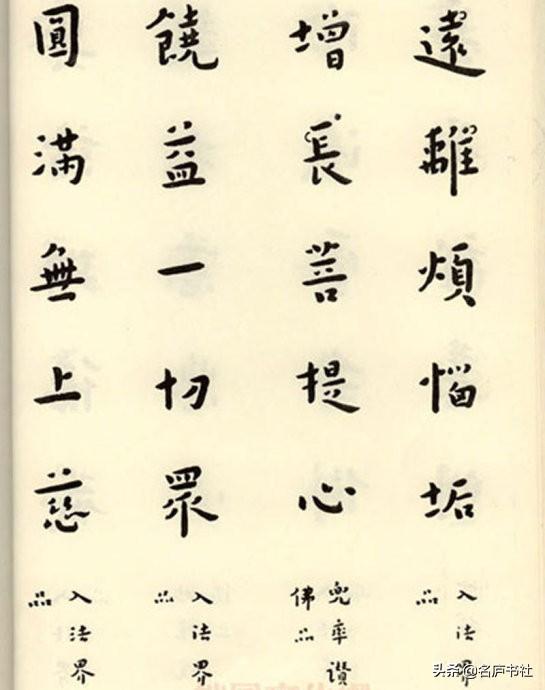 遠離煩惱垢
入法界品
增長菩提心
兜率讚佛品
饒益一切眾
入法界品
圓滿無上慈
入法界品
头条@名庐书社